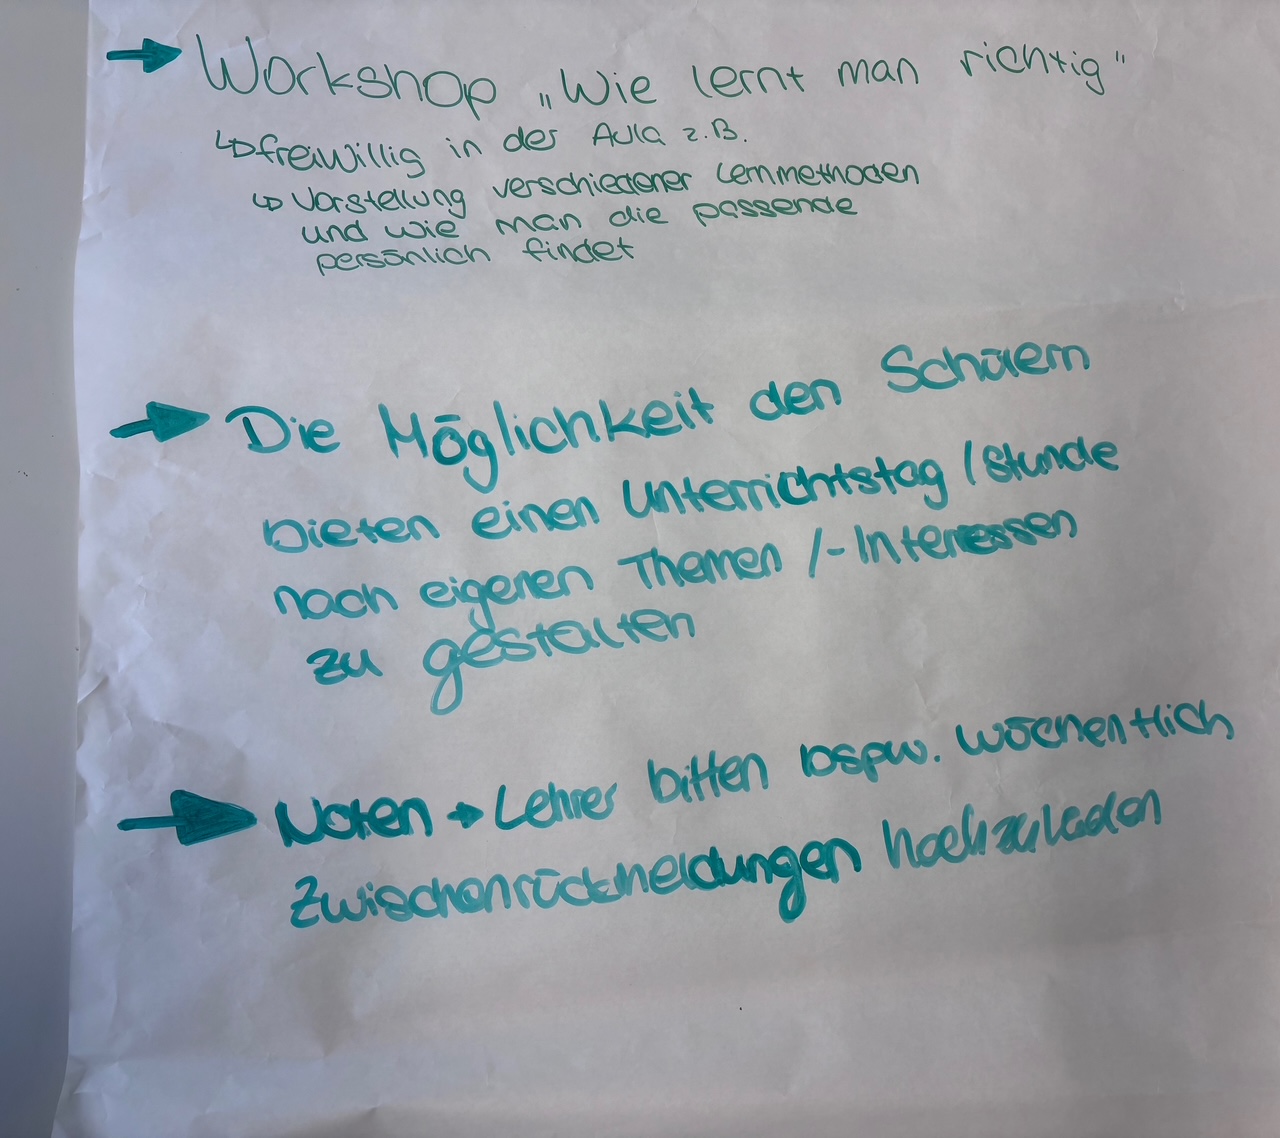 → Workshop „Wie lernt man richtig"
↳ freiwillig in der Aula z.B.
↳ Vorstellung verschiedener Lernmethoden
und wie man die passende
persönlich findet
→ Die Möglichkeit den Schülern
bieten einen Unterrichtstag / Stunde
nach eigenen Themen /-Interessen
zu gestalten
→ Noten → Lehrer bitten bspw. wöchentlich
Zwischenrückmeldungen hochzuladen